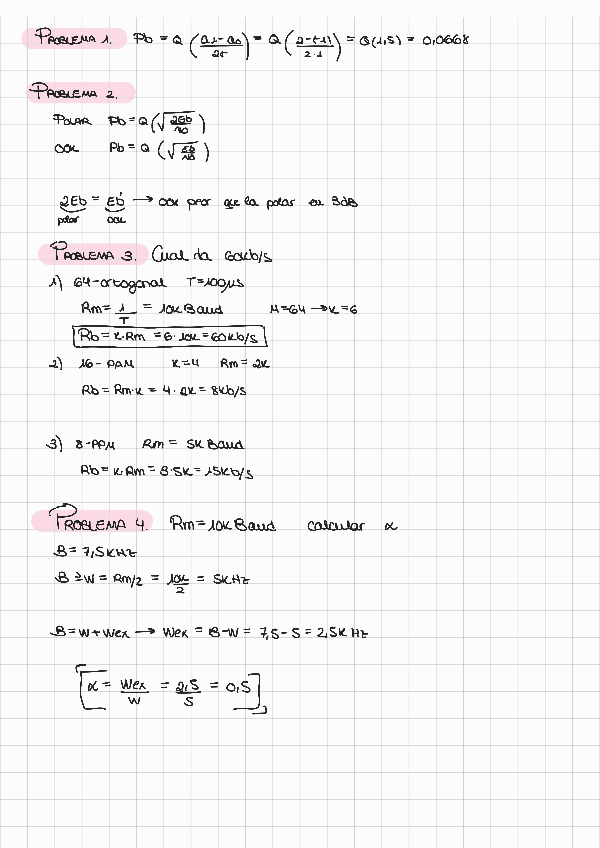 PROBLEMA 1. Pb = Q (a1-a0/2σ) = Q (2-(-1)/2·1) = Q(1,5) = 0,0668
PROBLEMA 2.
POLAR Pb = Q (√2Eb/N0)
OOK Pb = Q (√Eb/N0)
2Eb = Eb' → OOK peor que la polar en 3dB
polar OOK
PROBLEMA 3. Cual da 60kb/s
1) 64-ortogonal T=100μs
Rm = 1/T = 10k Baud M=64 → k=6
Rb = k·Rm = 6·10k = 60kb/s
2) 16-PAM k=4 Rm = 2k
Rb = Rm·k = 4·2k = 8kb/s
3) 8-PPM Rm = 5k Baud
Rb = k·Rm = 3·5k = 15kb/s
PROBLEMA 4. Rm = 10k Baud calcular α
B = 7,5 kHz
B ≥ W = Rm/2 = 10k/2 = 5kHz
B = W + Wex → Wex = B-W = 7,5 - 5 = 2,5k Hz
α = Wex/W = 2,5/5 = 0,5